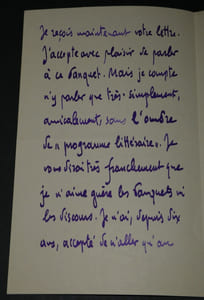 Je reçois maintenant votre lettre.
J'accepte avec plaisir de parler
à ce banquet. Mais je compte
n'y parler que très-simplement,
amicalement, sans l'ombre
de « programme littéraire ». Je
vous dirai très franchement que
je n'aime guère les banquets ni
les discours. Je n'ai, depuis dix
ans, accepté de n'aller qu'au